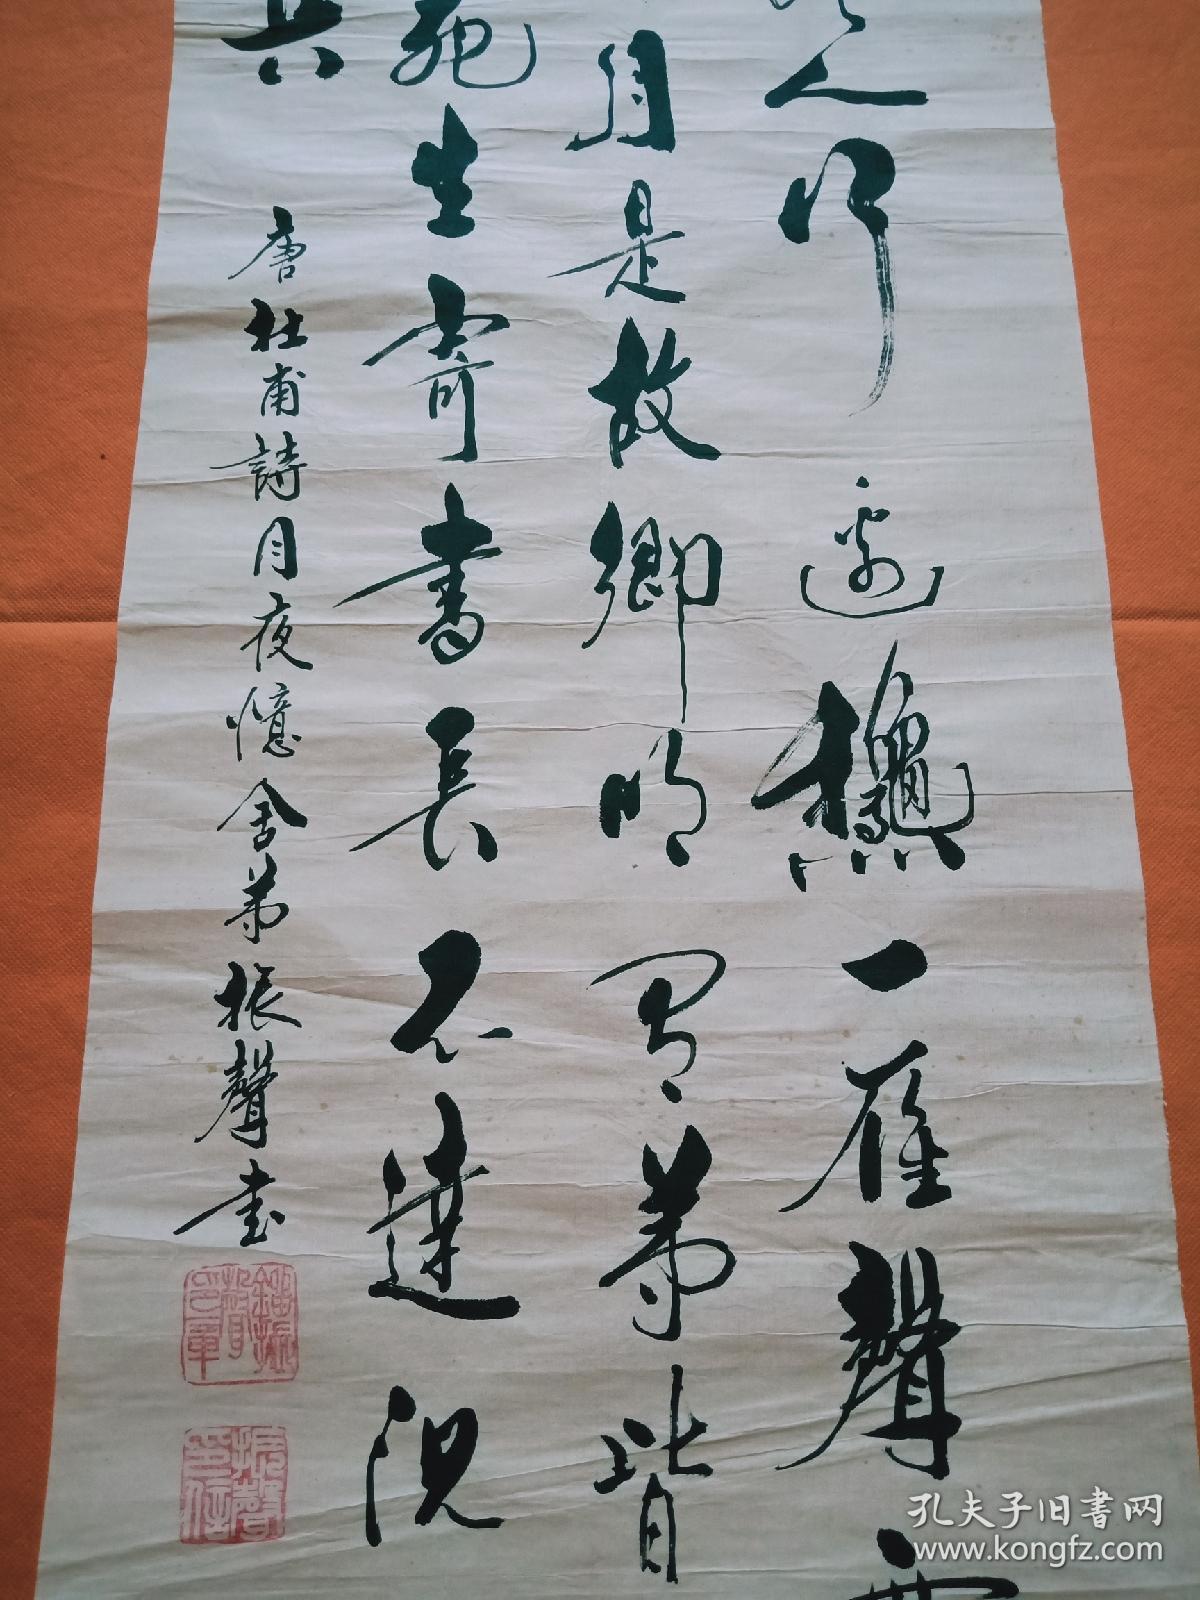 人行邊龝一雁聲露
月是故鄉明有弟皆
死生寄書長不達況
兵
唐杜甫詩月夜憶舍弟振聲書
振聲
孔夫子旧书网
www.kongfz.com